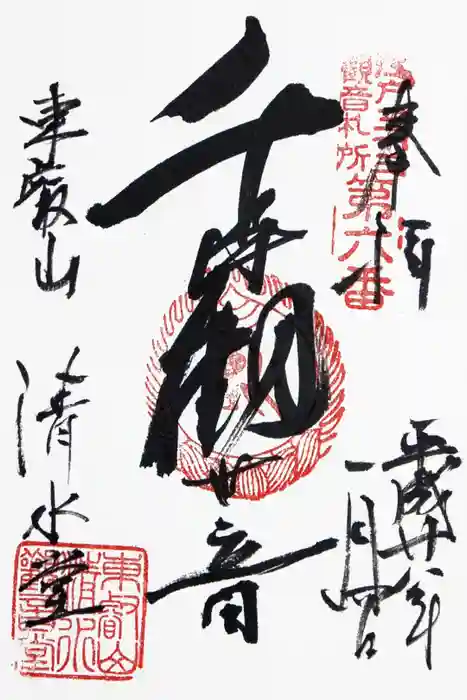 奉拝
江戸
観音札所第六番
平成十八年
一月
千手観世音
東叡山
清水堂
東叡山
清水
観音堂